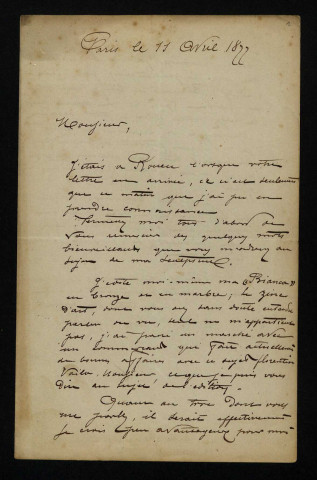 Paris le 11 Avril 1877
Monsieur,
J'étais à Rouen lorsque votre
lettre est arrivée, ce n'est seulement
que ce matin que j'ai pu en
prendre connaissance
Permettez moi tout d'abord de
vous remercier des quelques mots
bienveillants que vous m'adressez au
sujet de ma sculpture.
J'édite moi-même ma "Bianca"
en bronze et en marbre; le
dont vous avez sans doute entendu
parler ou vu, ne m'appartient
pas, j'ai passé un marché avec
un commerçant qui fait actuellement
de bonnes affaires avec ce sujet florentin
Voilà, Monsieur ce que je puis vous
dire au sujet des éditions.
Quant au dont vous
me parlez, il serait effectivement
je crois peu avantageux pour moi